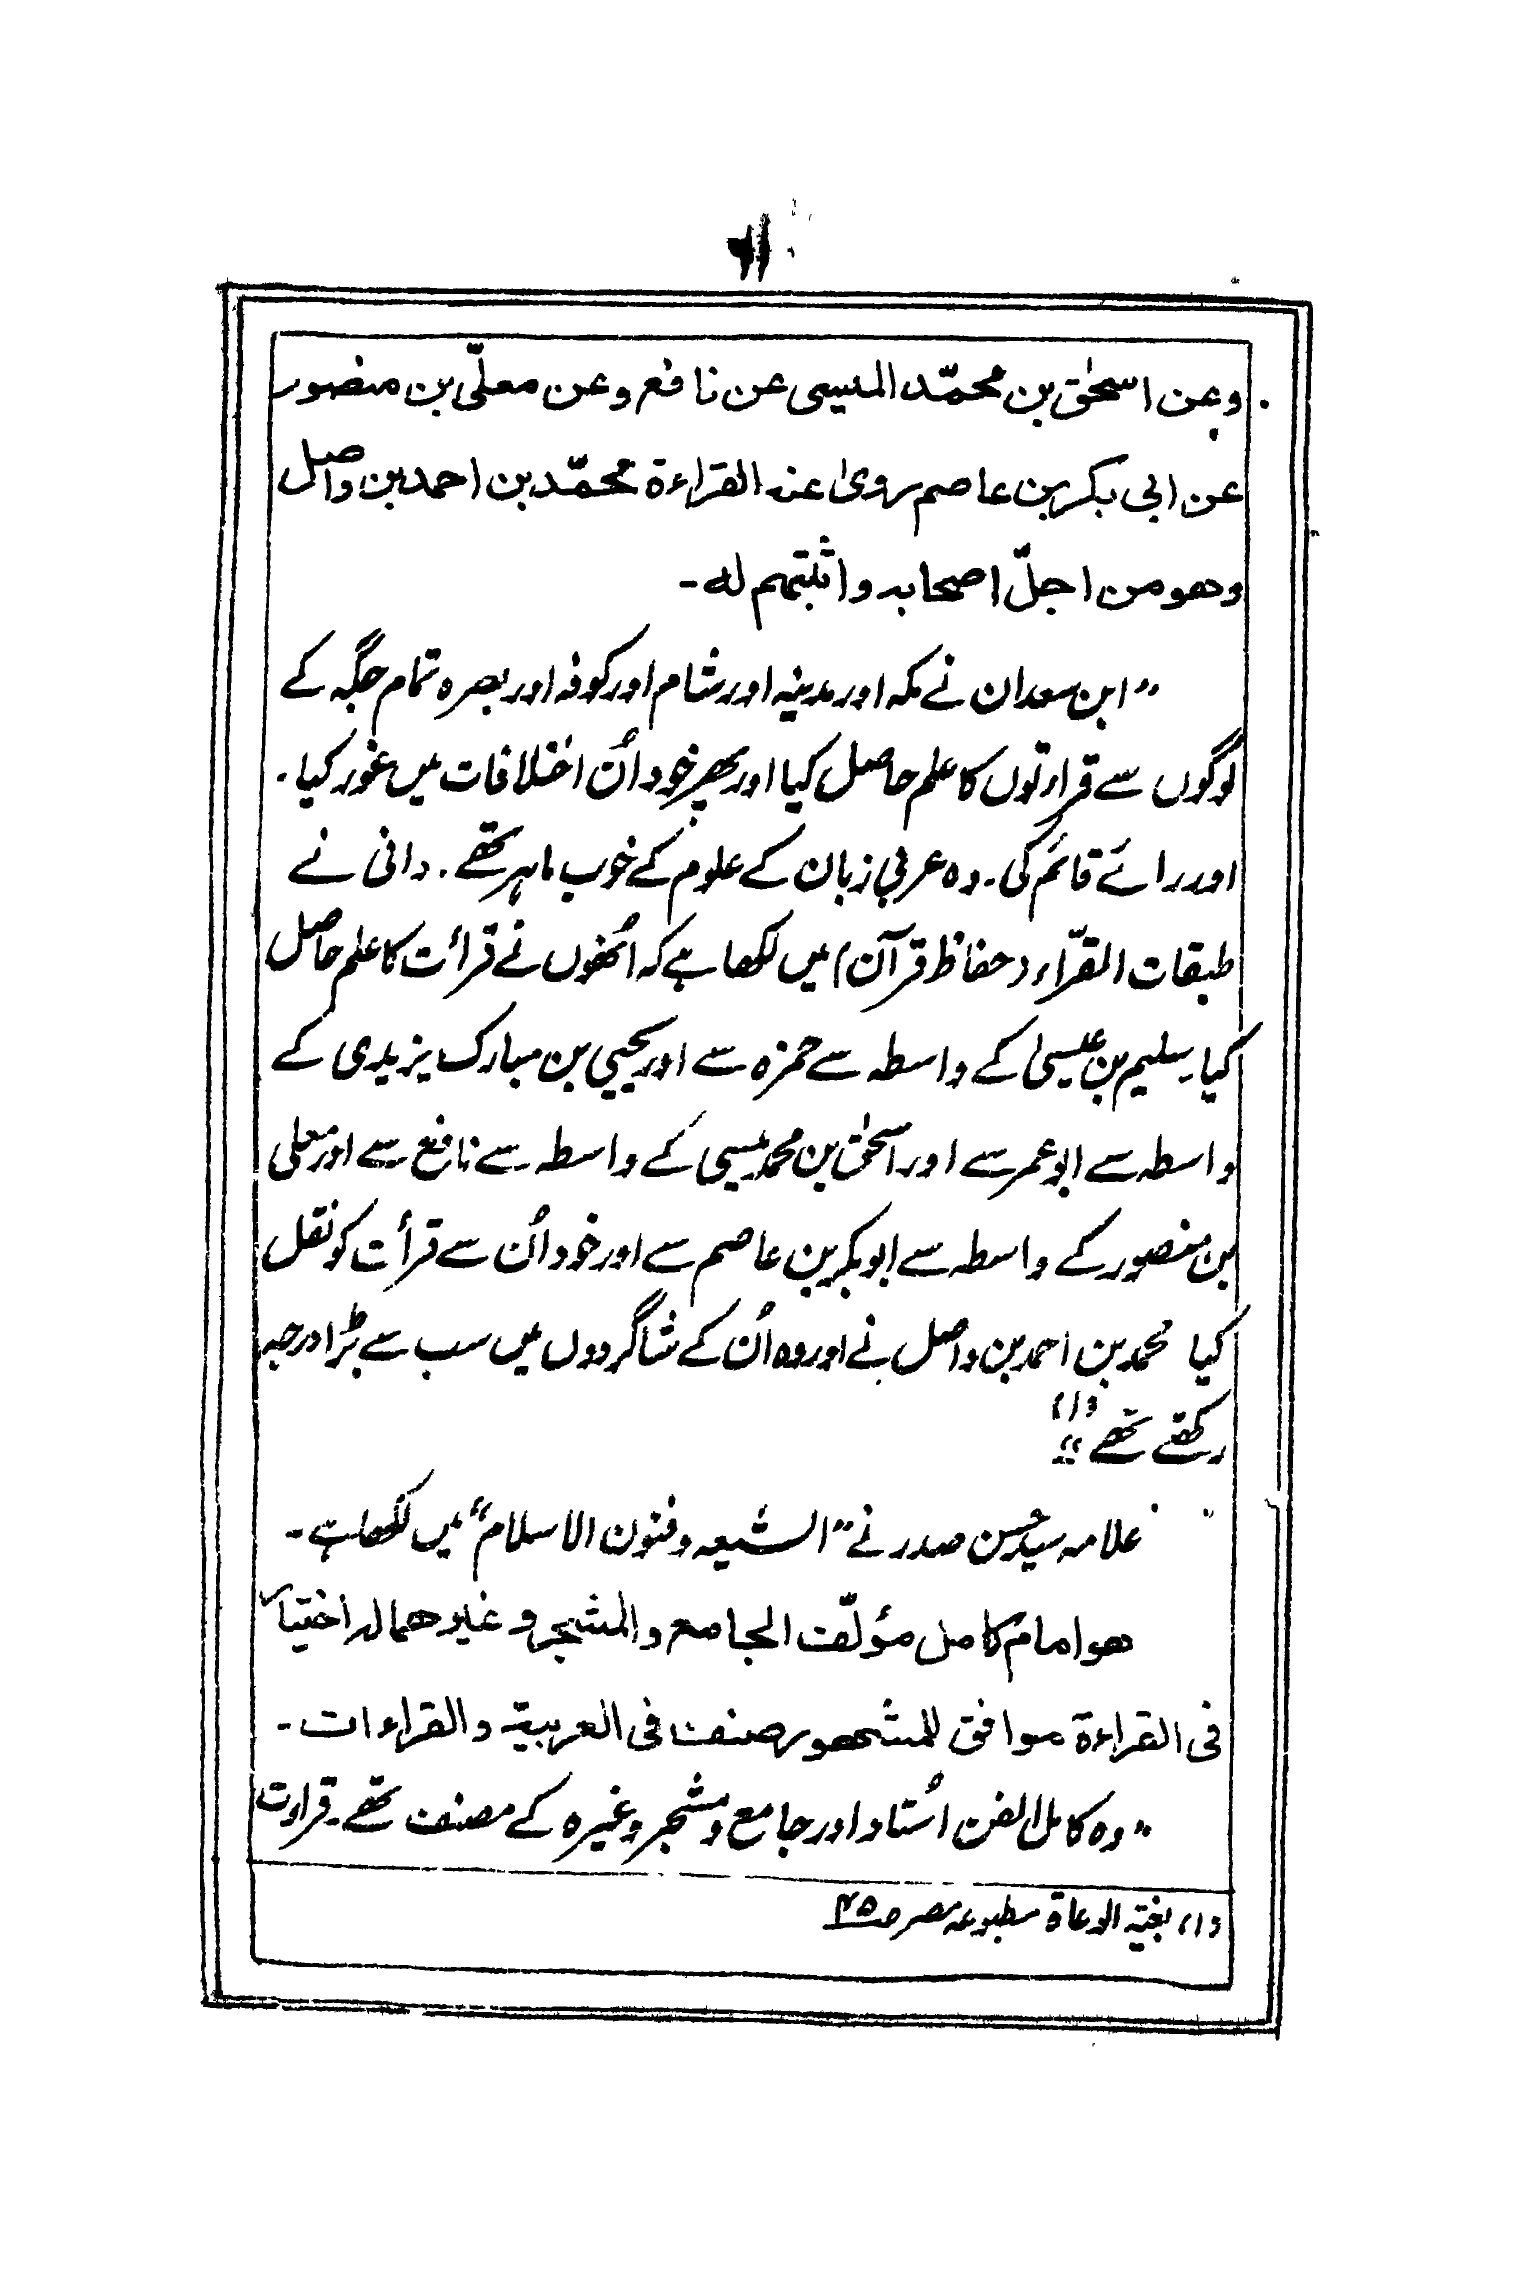 وعن اسحٰق بن محمّد المسیبی عن نافع وعن معلّی بن منصور
عن ابی بکر بن عاصم روی عنه القراءة محمّد بن احمد بن واصل
وهو من اجلّ اصحابه واثبتهم له۔
”ابن سعدان نے مکہ اور مدینہ اور شام اور کوفہ اور بصرہ تمام جگہ کے
لوگوں سے قرارتوں کا علم حاصل کیا اور پھر خود اُن اختلافات میں غور کیا۔
اور رائے قائم کی۔ وہ عربی زبان کے علوم کے خوب ماہر تھے۔ دانی نے
طبقات القرّاء (حفاظ قرآن) میں لکھا ہے کہ اُنھوں نے قرأت کا علم حاصل
کیا سلیم بن عیسیٰ کے واسطہ سے حمزہ سے اور یحیی بن مبارک یزیدی کے
واسطہ سے ابو عمر سے اور اسحٰق بن محمد مسیبی کے واسطہ سے نافع سے اور معلی
بن منصور کے واسطہ سے ابو بکر بن عاصم سے اور خود اُن سے قرأت کو نقل
کیا محمد بن احمد بن واصل نے اور وہ اُن کے شاگردوں میں سب سے بڑا درجہ
رکھتے تھے“ (۱)
علامہ سید حسن صدر نے ”الشیعہ و فنون الاسلام“ میں لکھا ہے۔
هو امام کامل مؤلّف الجامع والمشجر وغیرهما له اختیار
فی القراءة موافق للمشهور صنف فی العربیة والقراءات۔
”وہ کامل الفن اُستاد اور جامع و مشجر وغیرہ کے مصنف تھے۔ قراوت
(۱) بغیۃ الوعاۃ مطبوعہ مصر ص۴۵